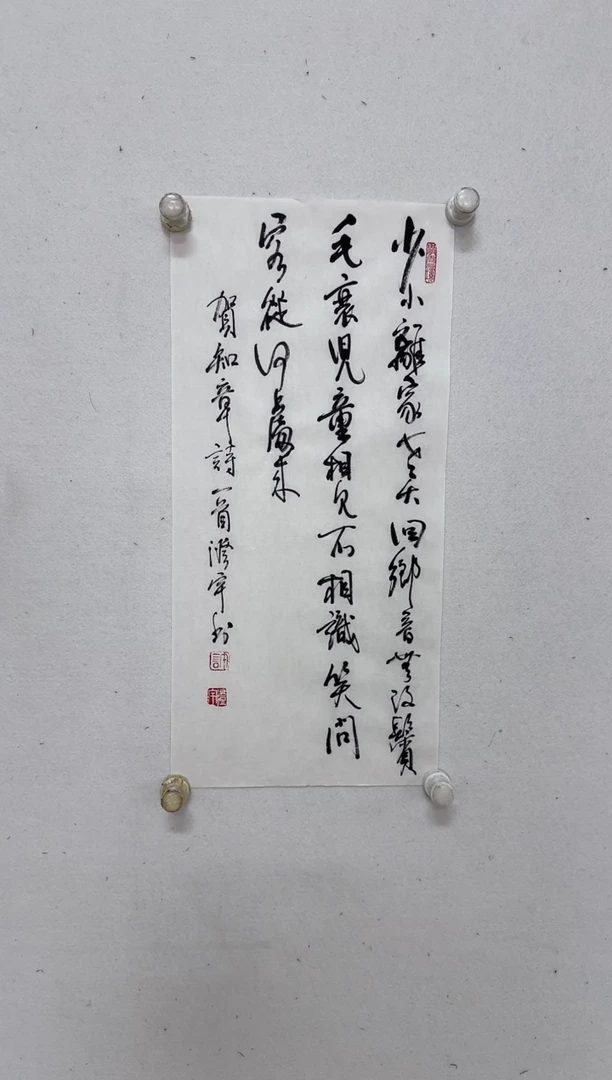 少小離家老大回鄉音無改鬢
毛衰兒童相見不相識笑問
客從何處來
賀知章詩一首澄宇